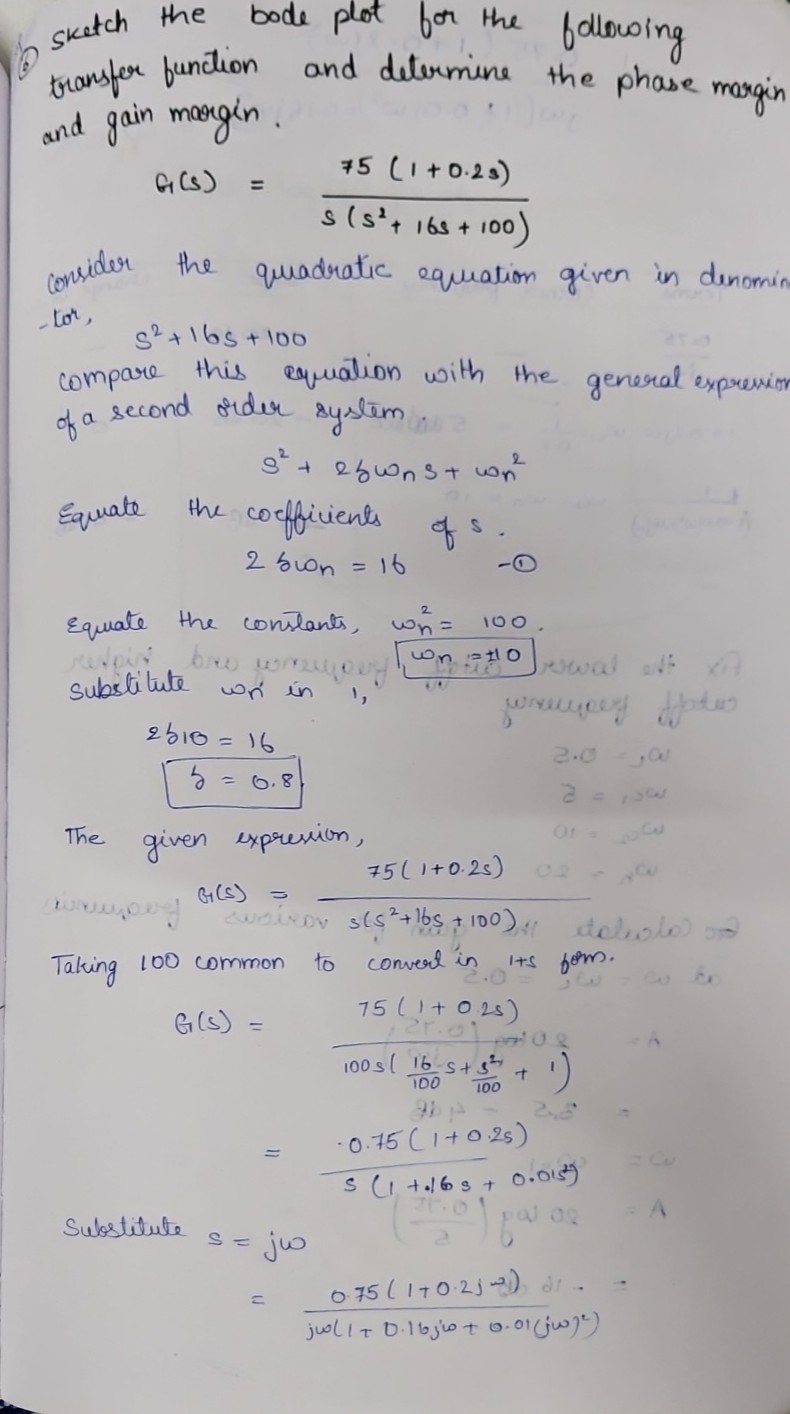 sketch the bode plot for the following
transfer function and determine the phase margin
and gain margin.
G(s) = 75 (1+0.2s) / s(s²+ 16s + 100)
consider the quadratic equation given in denomin
-tor,
s²+16s+100
compare this equation with the general expression
of a second order system.
s² + 2ζωn s + ωn²
Equate the coefficients of s.
2ζωn = 16 -①
Equate the constants, ωn² = 100.
ωn = ±10
Substitute ωn in 1,
2ζ10 = 16
ζ = 0.8
The given expression,
G(s) = 75(1+0.2s) / s(s²+16s+100)
Taking 100 common to convert in 1+s form.
G(s) = 75(1+0.2s) / 100s(16/100 s + s²/100 + 1)
= 0.75(1+0.2s) / s(1+.16s + 0.01s²)
Substitute s = jω
= 0.75(1+0.2jω) / jω(1+0.16jω + 0.01(jω)²)